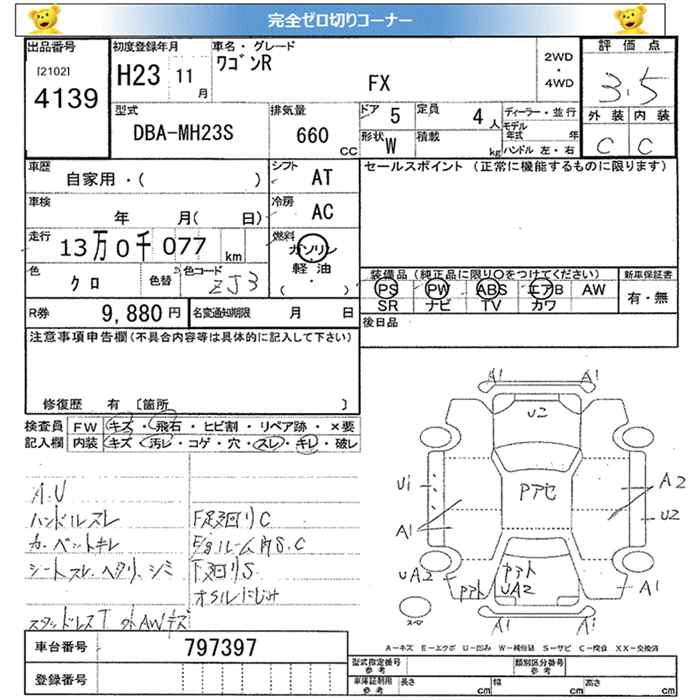 完全ゼロ切りコーナー
出品番号 初度登録年月 車名・グレード 評価点
[2102] 4139 H23 11月 ワゴンR FX 2WD・4WD 3.5
型式 排気量 ドア 5 定員 4人 ディーラー・並行 外装 内装
DBA-MH23S 660 CC 形状 W 積載 kg モデル年式 年 ハンドル 左・右 C C
車歴 シフト セールスポイント (正常に機能するものに限ります)
自家用・( ) AT
車検 冷房
年 月( 日) AC
走行 燃料
13万0千077 km ガソリン
軽油
( ・ )
色 クロ 色替 色コード ZJ3
装備品(純正品に限り○をつけてください) 新車保証書
PS PW ABS エアB AW 有・無
SR ナビ TV カワ
R券 9,880円 名変通知期限 月 日 後日品
注意事項申告欄(不具合内容等は具体的に記入して下さい)
修復歴 有 [箇所 ]
検査員 FW キズ・飛石・ヒビ割・リペア跡・×要
記入欄 内装 キズ・汚レ・コゲ・穴・スレ・キレ・破レ
A.U
ハンドルスレ F足廻りC
カーペットキレ E/gルーム内S.C
シートスレ.ヘタリ.シミ 下廻りS
オイルにじみ
スタッドレスT 外AWキズ
A1 A1
U2
U1 Pアセ A2
A1 U2
UA2 Pアト Pアト UA2 A1
スペア A1 A1
A-キズ E-エクボ U-凹み W-補修跡 S-サビ C-腐食 XX-交換済
車台番号 797397 型式指定番号 参考 類別区分番号 参考
登録番号 車庫証明用 参考 長さ cm 幅 cm 高さ cm